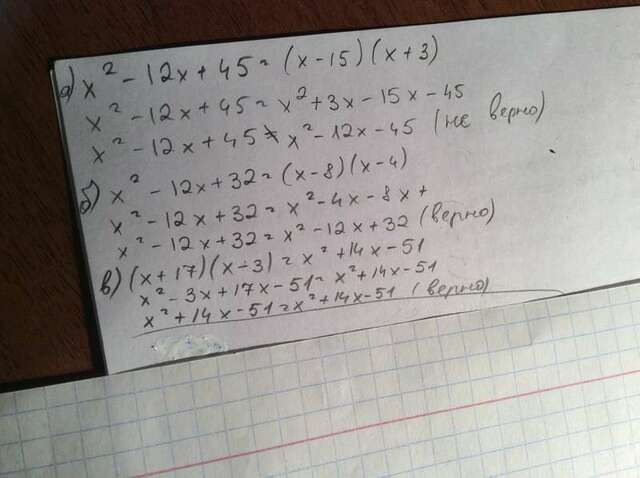 а) x² - 12x + 45 = (x - 15)(x + 3)
x² - 12x + 45 = x² + 3x - 15x - 45
x² - 12x + 45 ≠ x² - 12x - 45 (не верно)
б) x² - 12x + 32 = (x - 8)(x - 4)
x² - 12x + 32 = x² - 4x - 8x +
x² - 12x + 32 = x² - 12x + 32 (верно)
в) (x + 17)(x - 3) = x² + 14x - 51
x² - 3x + 17x - 51 = x² + 14x - 51
x² + 14x - 51 = x² + 14x - 51 (верно)